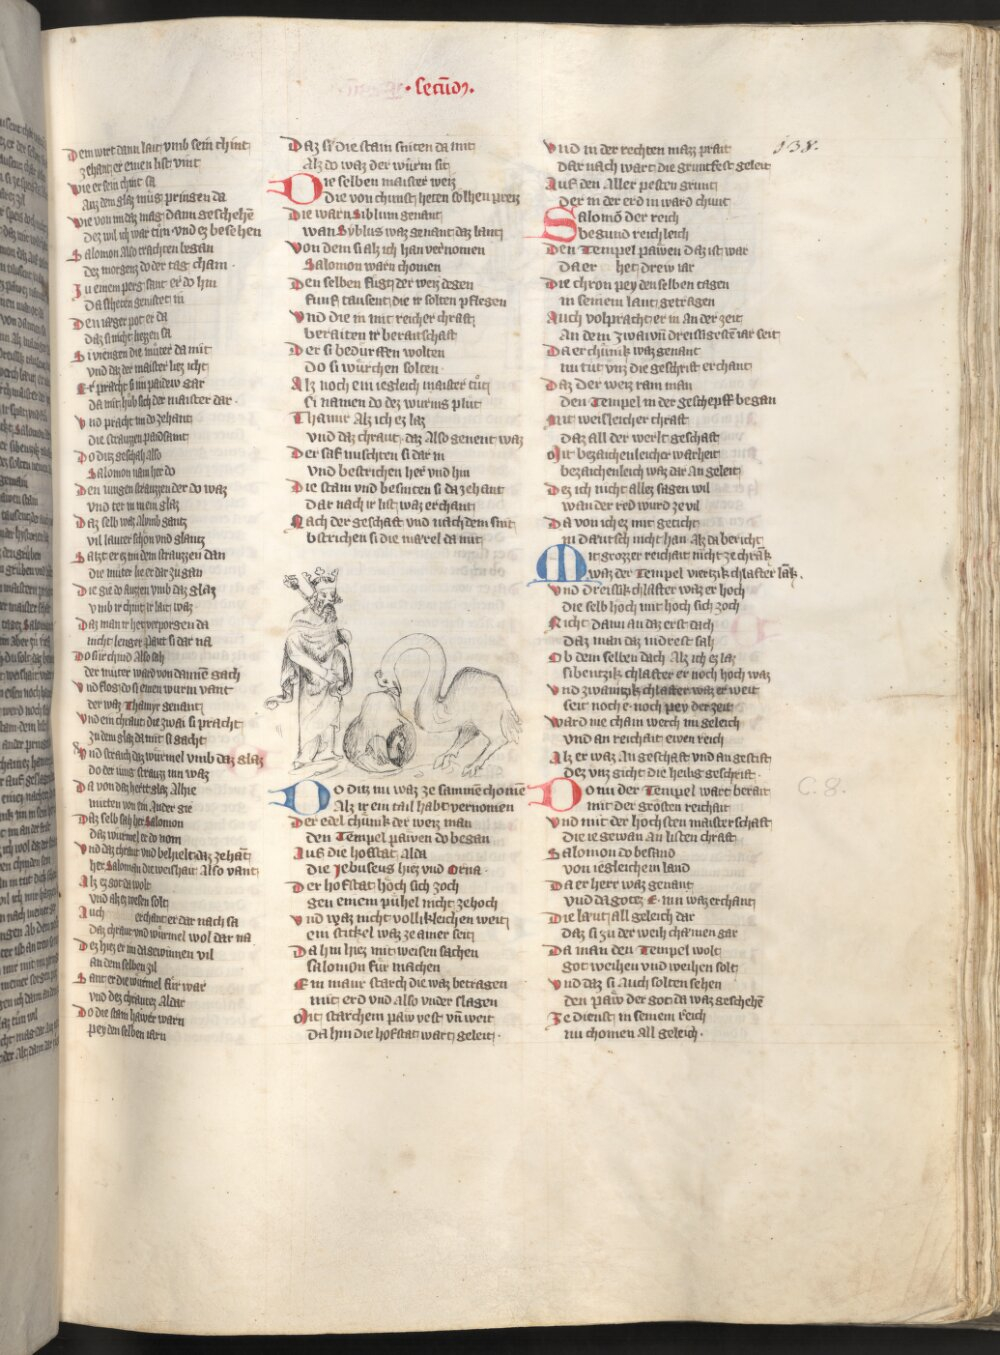 · secūdꝫ.
138.
Dem wirt dann laut vmb sein chint
zehant er einen list vint
Wie er sein chint sa
Auz dem glaz müg pringen da
Wie von im daz mag dann geschehē
Dez wil ich war tün vnd ez besehen
Salomon Also trachten began
dez morgens do der tag cham ·
In einem perg fant er do hin
Da si heten genistet in
Den iager pot er da
Daz si nicht liezen sa
Si viengen die müter da mit
vnd daz der maister liez icht
Er prächt si im paidew gar
da mit hüb sich der maister dar ·
Vnd pracht im do zehant
die strauzzen paid samt
Do ditz geschah Also
Salomon nam her do
Den iungen strauzzen der do waz
vnd tet in in ein glaz
Daz selb waz Alvmb gantz
vil lauter schön vnd glantz
Satzt er ez in dem strauzzen dan
die müter lie er dar zu gan
Die gie do auzzen vmb daz glaz
vmb ir chint ir lait waz
Daz man ir het verporgen da
nicht lenger pait si dar na
Do si ir chind Also sah
der müter ward von dannē gach
Vnd flog do si einen wurm vant
der waz Thamyr genant
Vnd ein chraut die zwai si pracht
zu dem glaz da mit si gacht
Vnd straich daz würmel vmb daz glaz
do der iung strauzz inn waz
Da von daz hertt glaz Alhie
mitten von ein Ander gie
Daz selb sah her Salomon
daz würmel er do nom
Vnd daz chraut vnd behielt daz zehāt
her Salomon die weishait Also vant
Alz ez got da wolt
vnd alz ez wesen solt
Auch erchant er dar nach sa
Daz chraut vnd würmel wol dar na
Dez hiez er im da gewinnen vil
an dem selben zil
Sant er die würmel für war
vnd dez chrautez Aldar
Do die stain hawer warn
pey den selben iarn
Daz si die stain sniten da mit
Alz do waz der würm sit
Die selben maister weiz
Die von chunst heten solhen preiz
Die warn Siblum genant
wan Syblus waz genant daz lant
Von dem si alz ich han vernomen
Salomon warn chomen
Den selben flizz der weiz degen
fumf tausent die ir solten pflegen
Vnd die in mit reicher chraft
beraiten ir beraitschaft
Der si bedurffen wolten
do si würchen solten ·
Alz noch ein iegleich maister tüt
si namen do dez wurms plüt
Thamir Alz ich ez laz
vnd daz chraut, daz Also genent waz
Der saf mischten si dar in
vnd bestrichen her vnd hin
Die stain vnd besniten si da zehant
dar nach ir list waz erchant
Nach der geschaft vnd nach dem snit
bstrichen si die märel da mit
Do ditz nu waz ze sammē chomē
Alz ir ein tail habt vernomen
Der edel chünik der weiz man
den Tempel pawen do began
Auf die hofstat Alda
die Jebuseus hiez vnd Orna ·
Der hofstat hoch sich zoch
gen einem pühel nicht ze hoch
Vnd waz nicht vollikleichen weit
ein stickel waz ze ainer seit
Da hin hiez mit weisen sachen
salomon für machen
Ein maur starch die waz betragen
mit erd vnd also vnder slagen
Mit starchem paw vest vñ weit
da hin die hofstat wart geleit ·
Vnd in der rechten mazz prait
dar nach wart die gruntfest geleit
Auf den Aller pesten grunt
der in der erd in ward chunt
Salomō der reich
begund reichleich
Den Tempel pawen daz ist war
da er het drew iar
Die chron pey den selben tagen
in seinem lant getragen
Auch volpracht er in An der zeit
An dem zwaiuñ dreissigestē iar seit
Da er chünik waz genant
nu tüt vnz die geschrift erchant
Daz der weiz ram man
den Tempel in der gescheph began
Mit weisleicher chraft
daz all der werlt geschaft
Mit bezaichenleicher warheit
bezaichenleich waz dar An geleit
Dez ich nicht allez sagen wil
wan der red wurd ze vil
Da von ich ez mit geticht
in dautsch nicht han Alz da bericht
Mit grozzer reichait nicht ze chrāk
waz der Tempel viertzik chlafter lāk.
Vnd dreissik chlafter waz er hoch
die selb höch mit hoch sich zoch
Nicht dann an daz erst dach
daz man daz nidrest sah
Ob dem selben dach Alz ich ez laz
sibentzik chlafter er noch hoch waz
Vnd zwaintzik chlafter waz er weit
seit noch e noch pey der zeit
Ward nie chain werch im geleich
vnd an reichait ewen reich
Alz er waz An geschaft vnd an gestift
dez vnz gicht die heilig geschrift ·
Do nu der Tempel wart berait
mit der grösten reichait
Vnd mit der hochsten maisterschaft
die ie gewan An listen chraft
Salomon do besand
von iegleichem land
Da er herr waz genant
vnd da gotz E · inn waz erchant
Die laut all geleich dar
daz si zu der weih chämen gar
Da man den Tempel wolt
got weihen vnd weihen solt
Vnd daz si Auch solten sehen
den paw der got da waz geschehē
Ze dienst in seinem reich
nu chomen All geleich ·
C. 8.